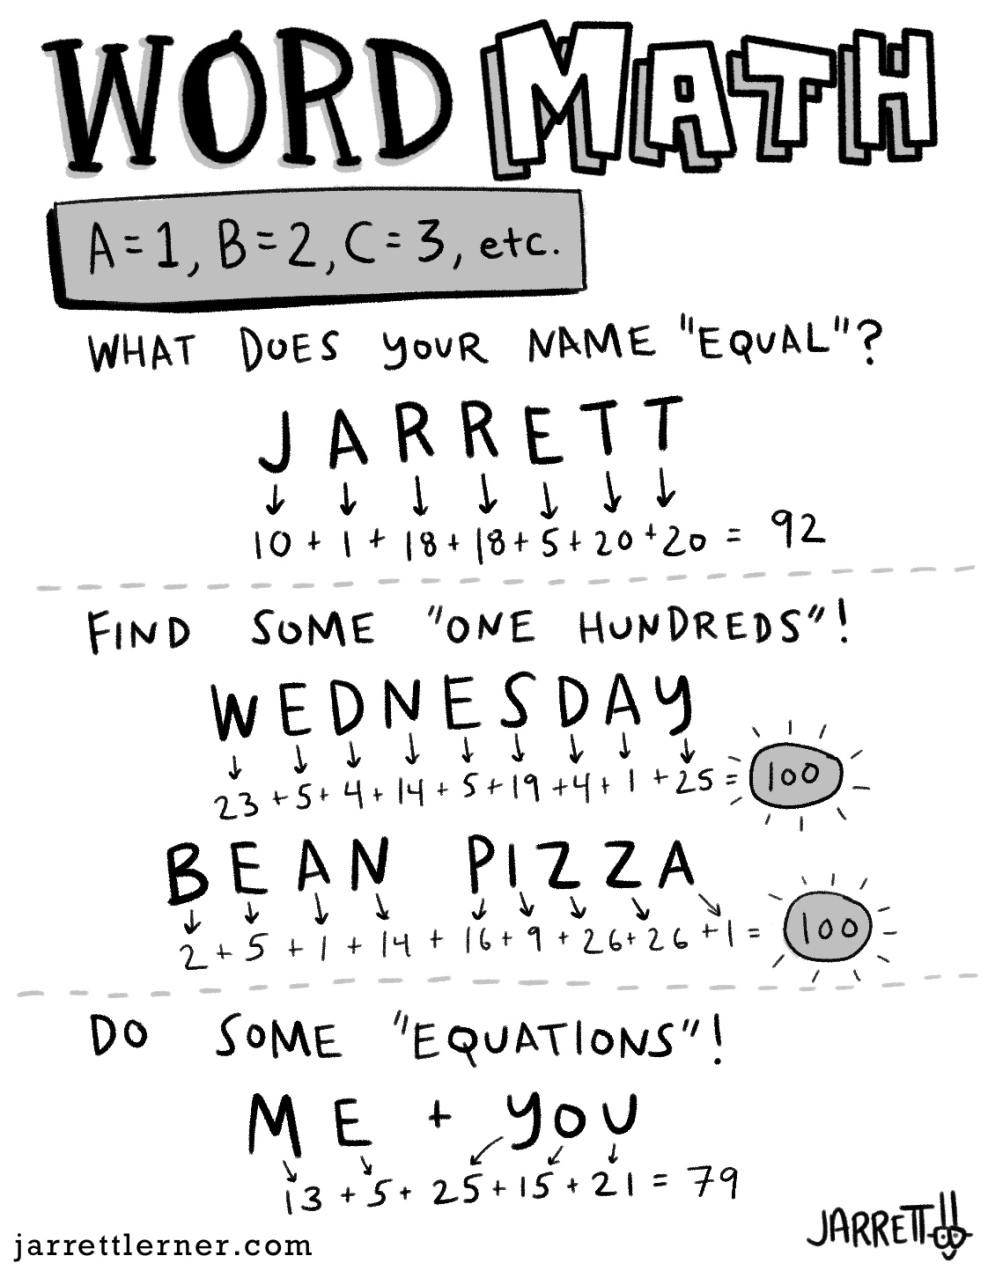 WORD MATH
A=1, B=2, C=3, etc.
WHAT DOES YOUR NAME "EQUAL"?
JARRETT
10 + 1 + 18 + 18 + 5 + 20 + 20 = 92
FIND SOME "ONE HUNDREDS"!
WEDNESDAY
23 + 5 + 4 + 14 + 5 + 19 + 4 + 1 + 25 = 100
BEAN PIZZA
2 + 5 + 1 + 14 + 16 + 9 + 26 + 26 + 1 = 100
DO SOME "EQUATIONS"!
ME + YOU
13 + 5 + 25 + 15 + 21 = 79
JARRETT
jarrettlerner.com